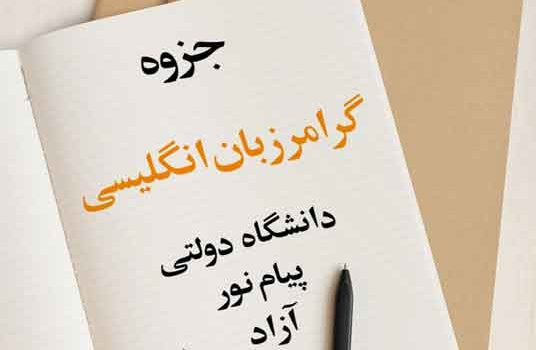 جزوه
گرامر زبان انگلیسی
دانشگاه دولتی
پیام نور
آزاد